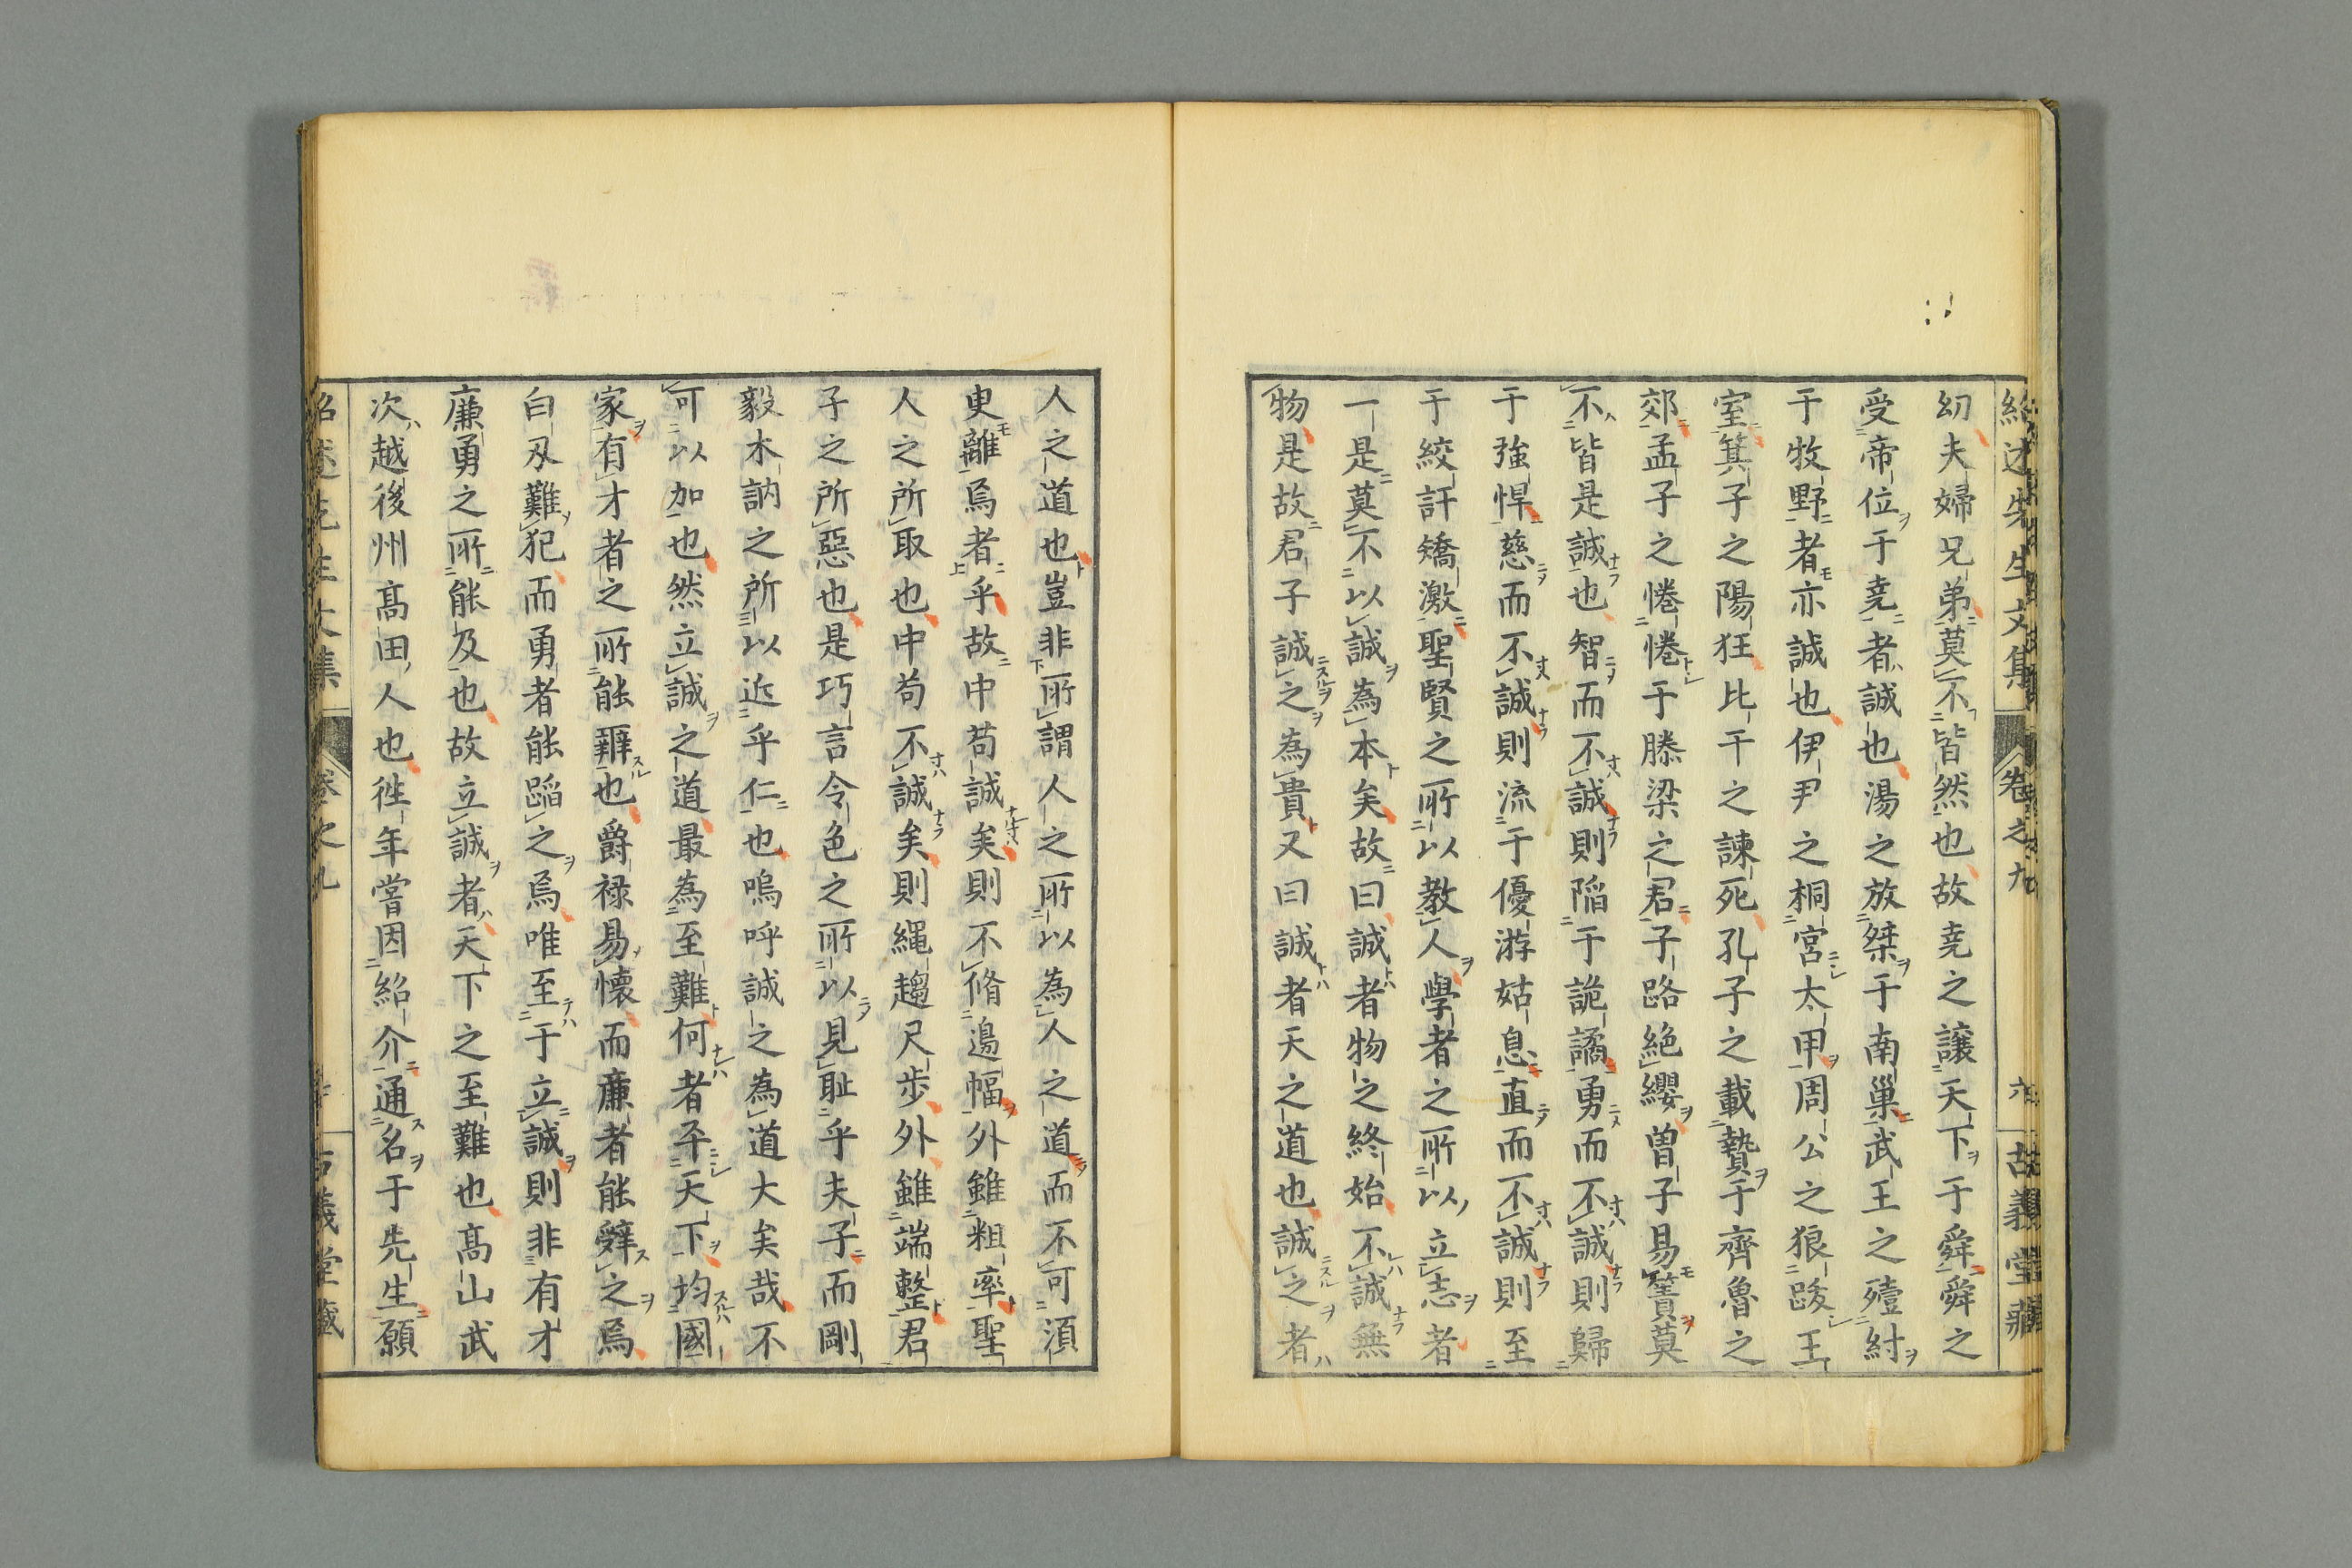 紹述先生文集 卷之九 六 古義堂藏
幼夫婦兄弟莫不皆然也故堯之讓天下于舜舜之
受帝位于堯者誠也湯之放桀于南巢武王之殪紂
于牧野者亦誠也伊尹之桐宮太甲周公之狼跋王
室箕子之陽狂比干之諫死孔子之載贄于齊魯之
郊孟子之惓惓于滕梁之君子路絕纓曾子易簀莫
不皆是誠也智而不誠則陷于詭譎勇而不誠則歸
于強悍慈而不誠則流于優游姑息直而不誠則至
于絞訐矯激聖賢之所以教人學者之所以立志者
一是莫不以誠為本矣故曰誠者物之終始不誠無
物是故君子誠之為貴又曰誠者天之道也誠之者
人之道也豈非所謂人之所以為人之道而不可須
臾離焉者乎故中苟誠矣則不脩邊幅外雖粗率聖
人之所取也中苟不誠矣則繩趨尺步外雖端整君
子之所惡也是巧言令色之所以見耻乎夫子而剛
毅木訥之所以近乎仁也嗚呼誠之為道大矣哉不
可以加也然立誠之道最為至難何者平天下均國
家有才者之所能辦也爵祿易懷而廉者能辭之焉
白刃難犯而勇者能蹈之焉唯至于立誠則非有才
廉勇之所能及也故立誠者天下之至難也高山武
次越後州高田人也往年嘗因紹介通名于先生願
紹述先生文集 卷之九 古義堂藏